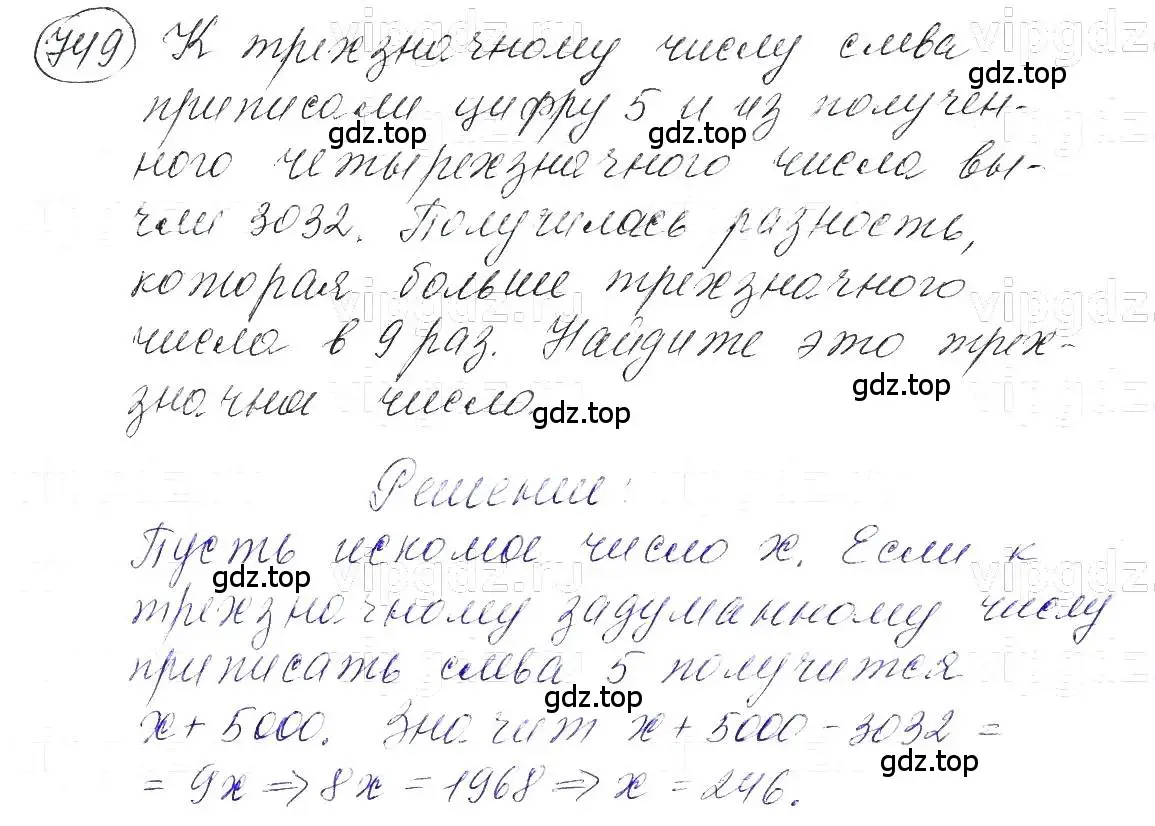 749 К трехзначному числу слева
приписали цифру 5 и из получен-
ного четырехзначного числа вы-
чли 3032. Получилась разность,
которая больше трехзначного
числа в 9 раз. Найдите это трех-
значна число
Решении:
Пусть искомое число x. Если к
трехзначному задуманному числу
приписать слева 5 получится
x + 5000. Значит x + 5000 - 3032 =
= 9x => 8x = 1968 => x = 246.
gdz.top
gdz.top
gdz.top
gdz.top
gdz.top
gdz.top
gdz.top
gdz.top